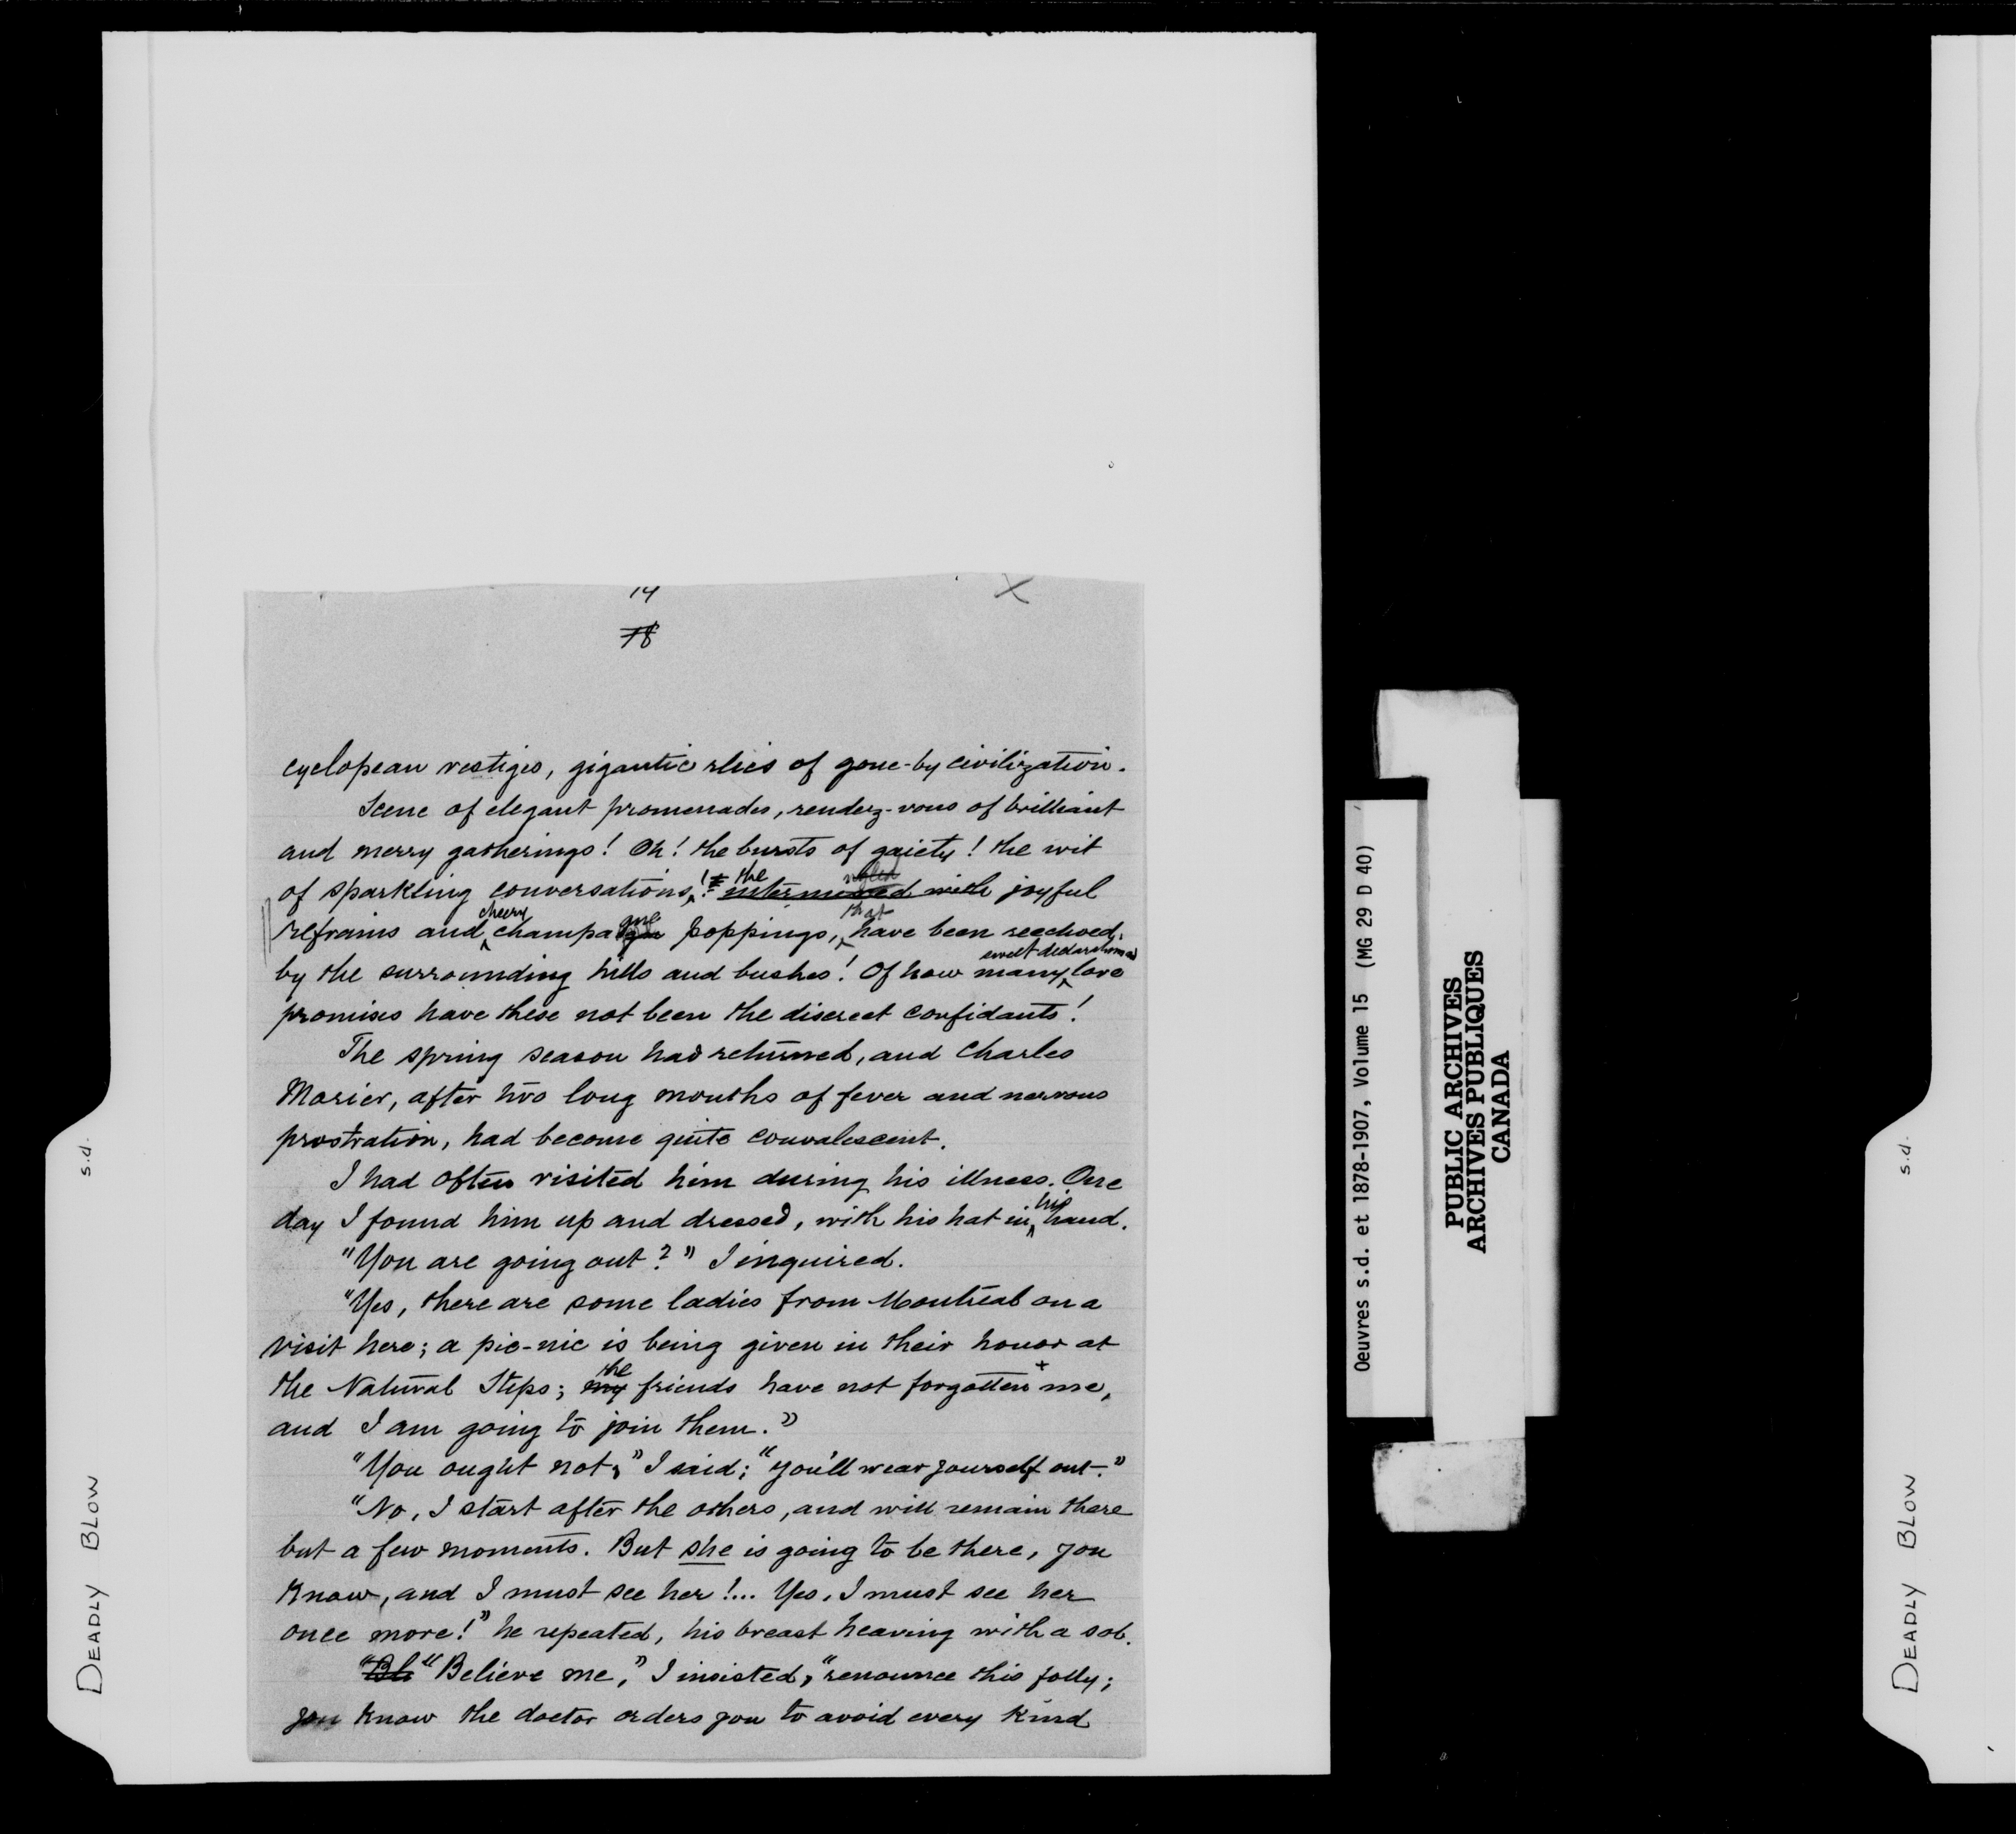 14
18
cyclopean vestiges, gigantic relics of gone-by civilization.
Scene of elegant promenades, rendez-vous of brilliant
and merry gatherings! Oh! the bursts of gaiety! the wit
of sparkling conversations! the intermixed with joyful
refrains and cheery champagne poppings, that have been reechoed
by the surrounding hills and bushes! Of how many sweet declarations and love
promises have these not been the discreet confidants!
The spring season had returned, and Charles
Mosier, after two long months of fever and nervous
prostration, had become quite convalescent.
I had often visited him during his illness. One
day I found him up and dressed, with his hat in his hand.
"You are going out?" I inquired.
"Yes, there are some ladies from Montreal on a
visit here; a pic-nic is being given in their honor at
the Natural Steps; my the friends have not forgotten + me,
and I am going to join them."
"You ought not," I said; "you'll wear yourself out."
"No, I start after the others, and will remain there
but a few moments. But she is going to be there, you
know, and I must see her!... Yes, I must see her
once more!" he repeated, his breast heaving with a sob.
"Be "Believe me," I insisted, "renounce this folly;
you know the doctor orders you to avoid every kind
DEADLY BLOW s.d.
Oeuvres s.d. et 1878-1907, Volume 15 (MG 29 D 40)
PUBLIC ARCHIVES
ARCHIVES PUBLIQUES
CANADA
DEADLY BLOW s.d.